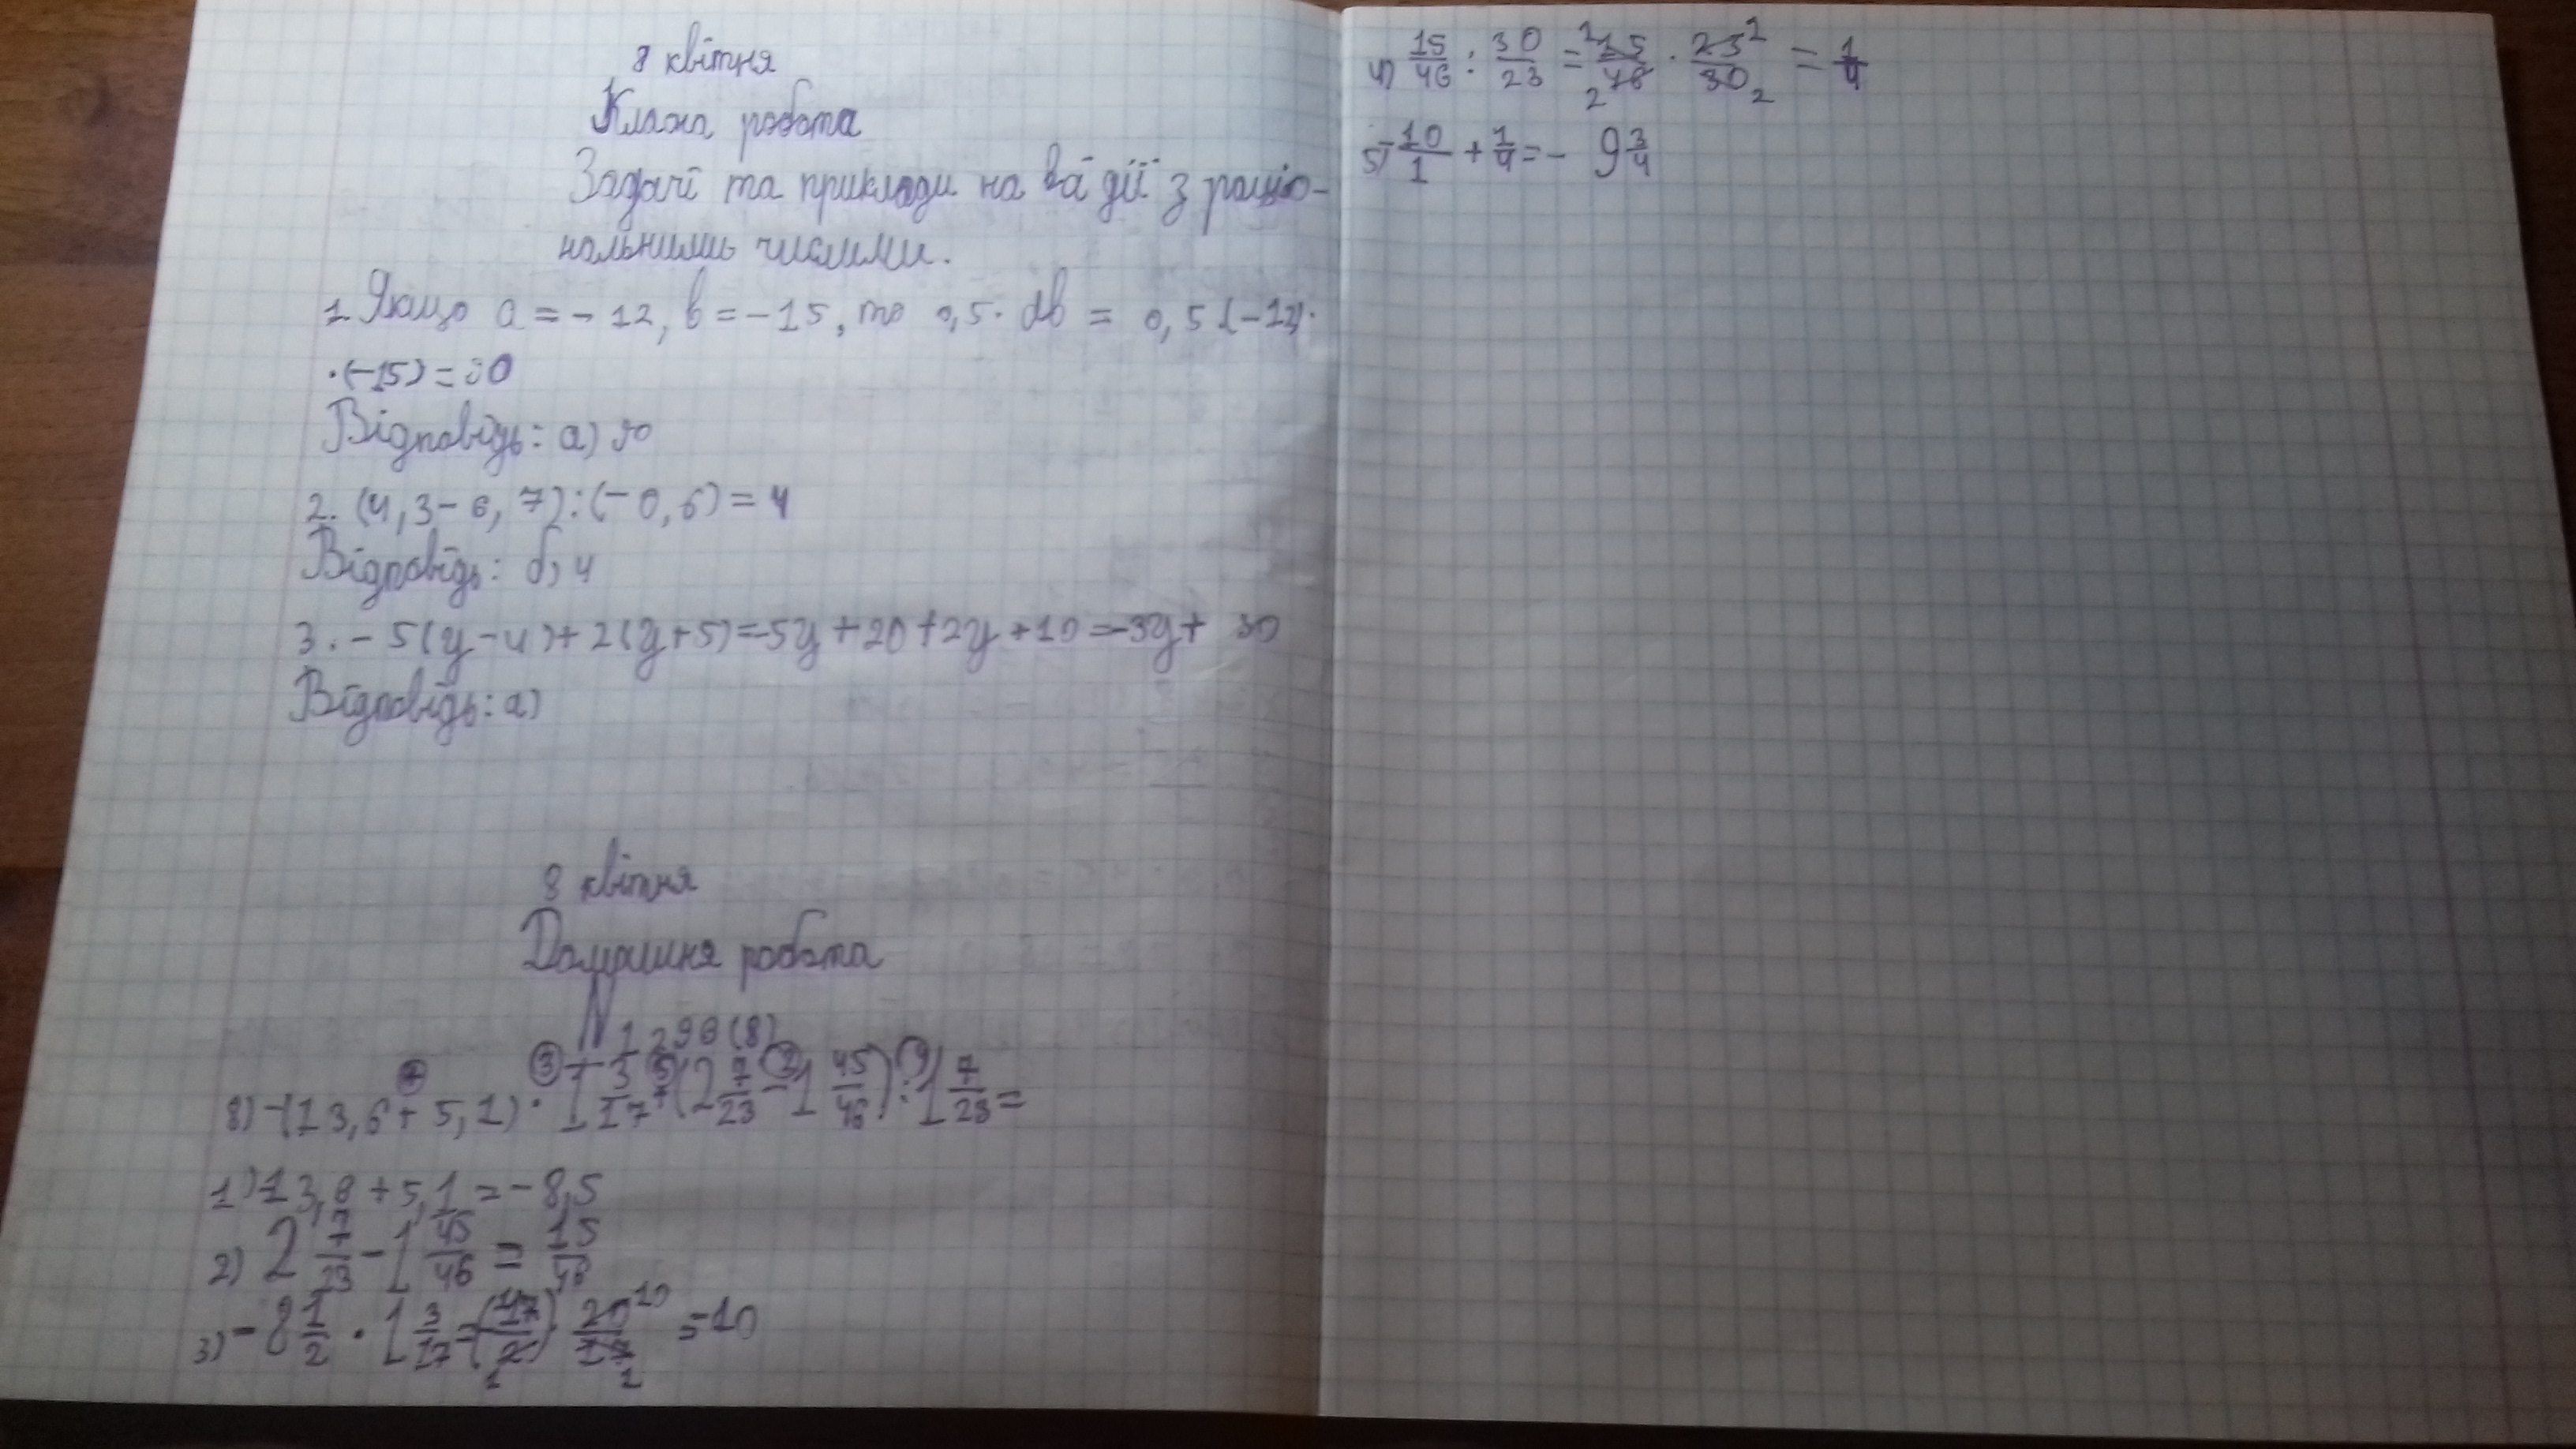 8 квітня
Класна робота
Задачі та приклади на всі дії з раціо-
нальними числами.
1. Якщо a = - 12, b = -15, то 0,5 · ab = 0,5 · (-12) ·
· (-15) = 90
Відповідь: а) 90
2. (4,3 - 6,7) : (-0,6) = 4
Відповідь: б) 4
3. - 5(y - 4) + 2(y + 5) = -5y + 20 + 2y + 10 = -3y + 30
Відповідь: а)
8 квітня
Домашня робота
N 1296 (8)
8) (-13,6 + 5,1) · 1 3/17 + (2 7/23 - 1 45/46) : 1 7/23 =
1) -13,6 + 5,1 = - 8,5
2) 2 7/23 - 1 45/46 = 15/46
3) - 8 1/2 · 1 3/17 = (-17/2) · 20/17 = -10
4) 15/46 : 30/23 = 15/46 · 23/30 = 1/4
5) -10/1 + 1/4 = - 9 3/4